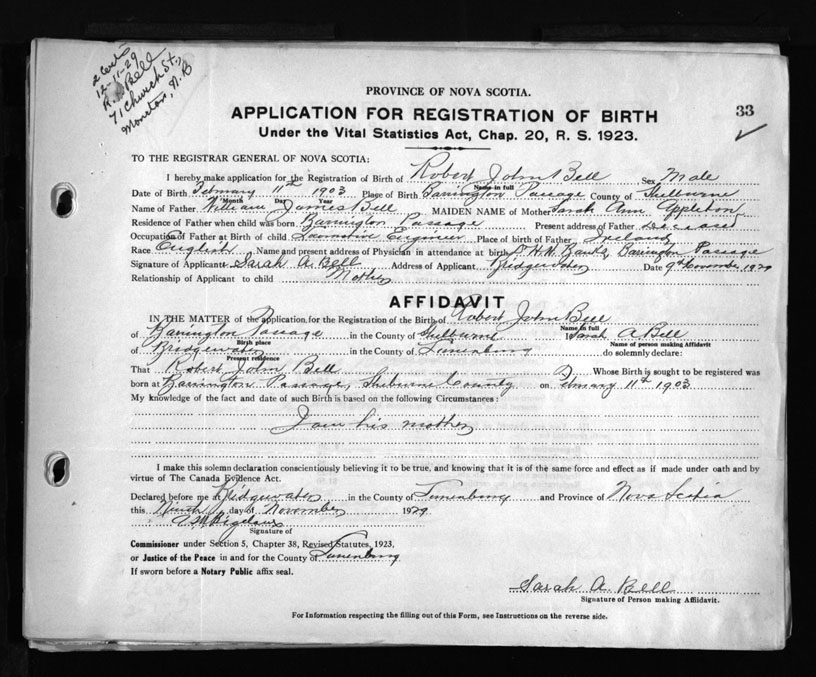 2 Certs
12-11-29
R. J. Bell
71 Church St.,
Moncton, N. B
PROVINCE OF NOVA SCOTIA.
APPLICATION FOR REGISTRATION OF BIRTH
33
Under the Vital Statistics Act, Chap. 20, R. S. 1923.
TO THE REGISTRAR GENERAL OF NOVA SCOTIA:
I hereby make application for the Registration of Birth of Robert John Bell Sex Male
Name in full
Date of Birth February 11th 1903 Place of Birth Barrington Passage County of Shelburne
Month Day Year
Name of Father William James Bell MAIDEN NAME of Mother Sarah Ann Appleton
Residence of Father when child was born Barrington Passage Present address of Father Deceased
Occupation of Father at Birth of child Engineer Place of birth of Father Ireland
Race English Name and present address of Physician in attendance at birth Dr H. H. Banks, Barrington Passage
Signature of Applicant Sarah A. Bell Address of Applicant Bridgewater Date 9th November 1929
Relationship of Applicant to child Mother
AFFIDAVIT
IN THE MATTER of the Application, for the Registration of the Birth of Robert John Bell
Name in full
of Barrington Passage in the County of Shelburne I Sarah A. Bell
Birth place Name of person making Affidavit
of Bridgewater in the County of Lunenburg do solemnly declare:
Present residence
That Robert John Bell Whose Birth is sought to be registered was
born at Barrington Passage, Shelburne County on February 11th 1903
My knowledge of the fact and date of such Birth is based on the following Circumstances:
I am his mother
I make this solemn declaration conscientiously believing it to be true, and knowing that it is of the same force and effect as if made under oath and by
virtue of The Canada Evidence Act.
Declared before me at Bridgewater in the County of Lunenburg and Province of Nova Scotia
this Ninth day of November 1929
Signature of
Commissioner under Section 5, Chapter 38, Revised Statutes, 1923,
or Justice of the Peace in and for the County of Lunenburg
If sworn before a Notary Public affix seal.
Sarah A. Bell
Signature of Person making Affidavit.
For Information respecting the filling out of this Form, see Instructions on the reverse side.